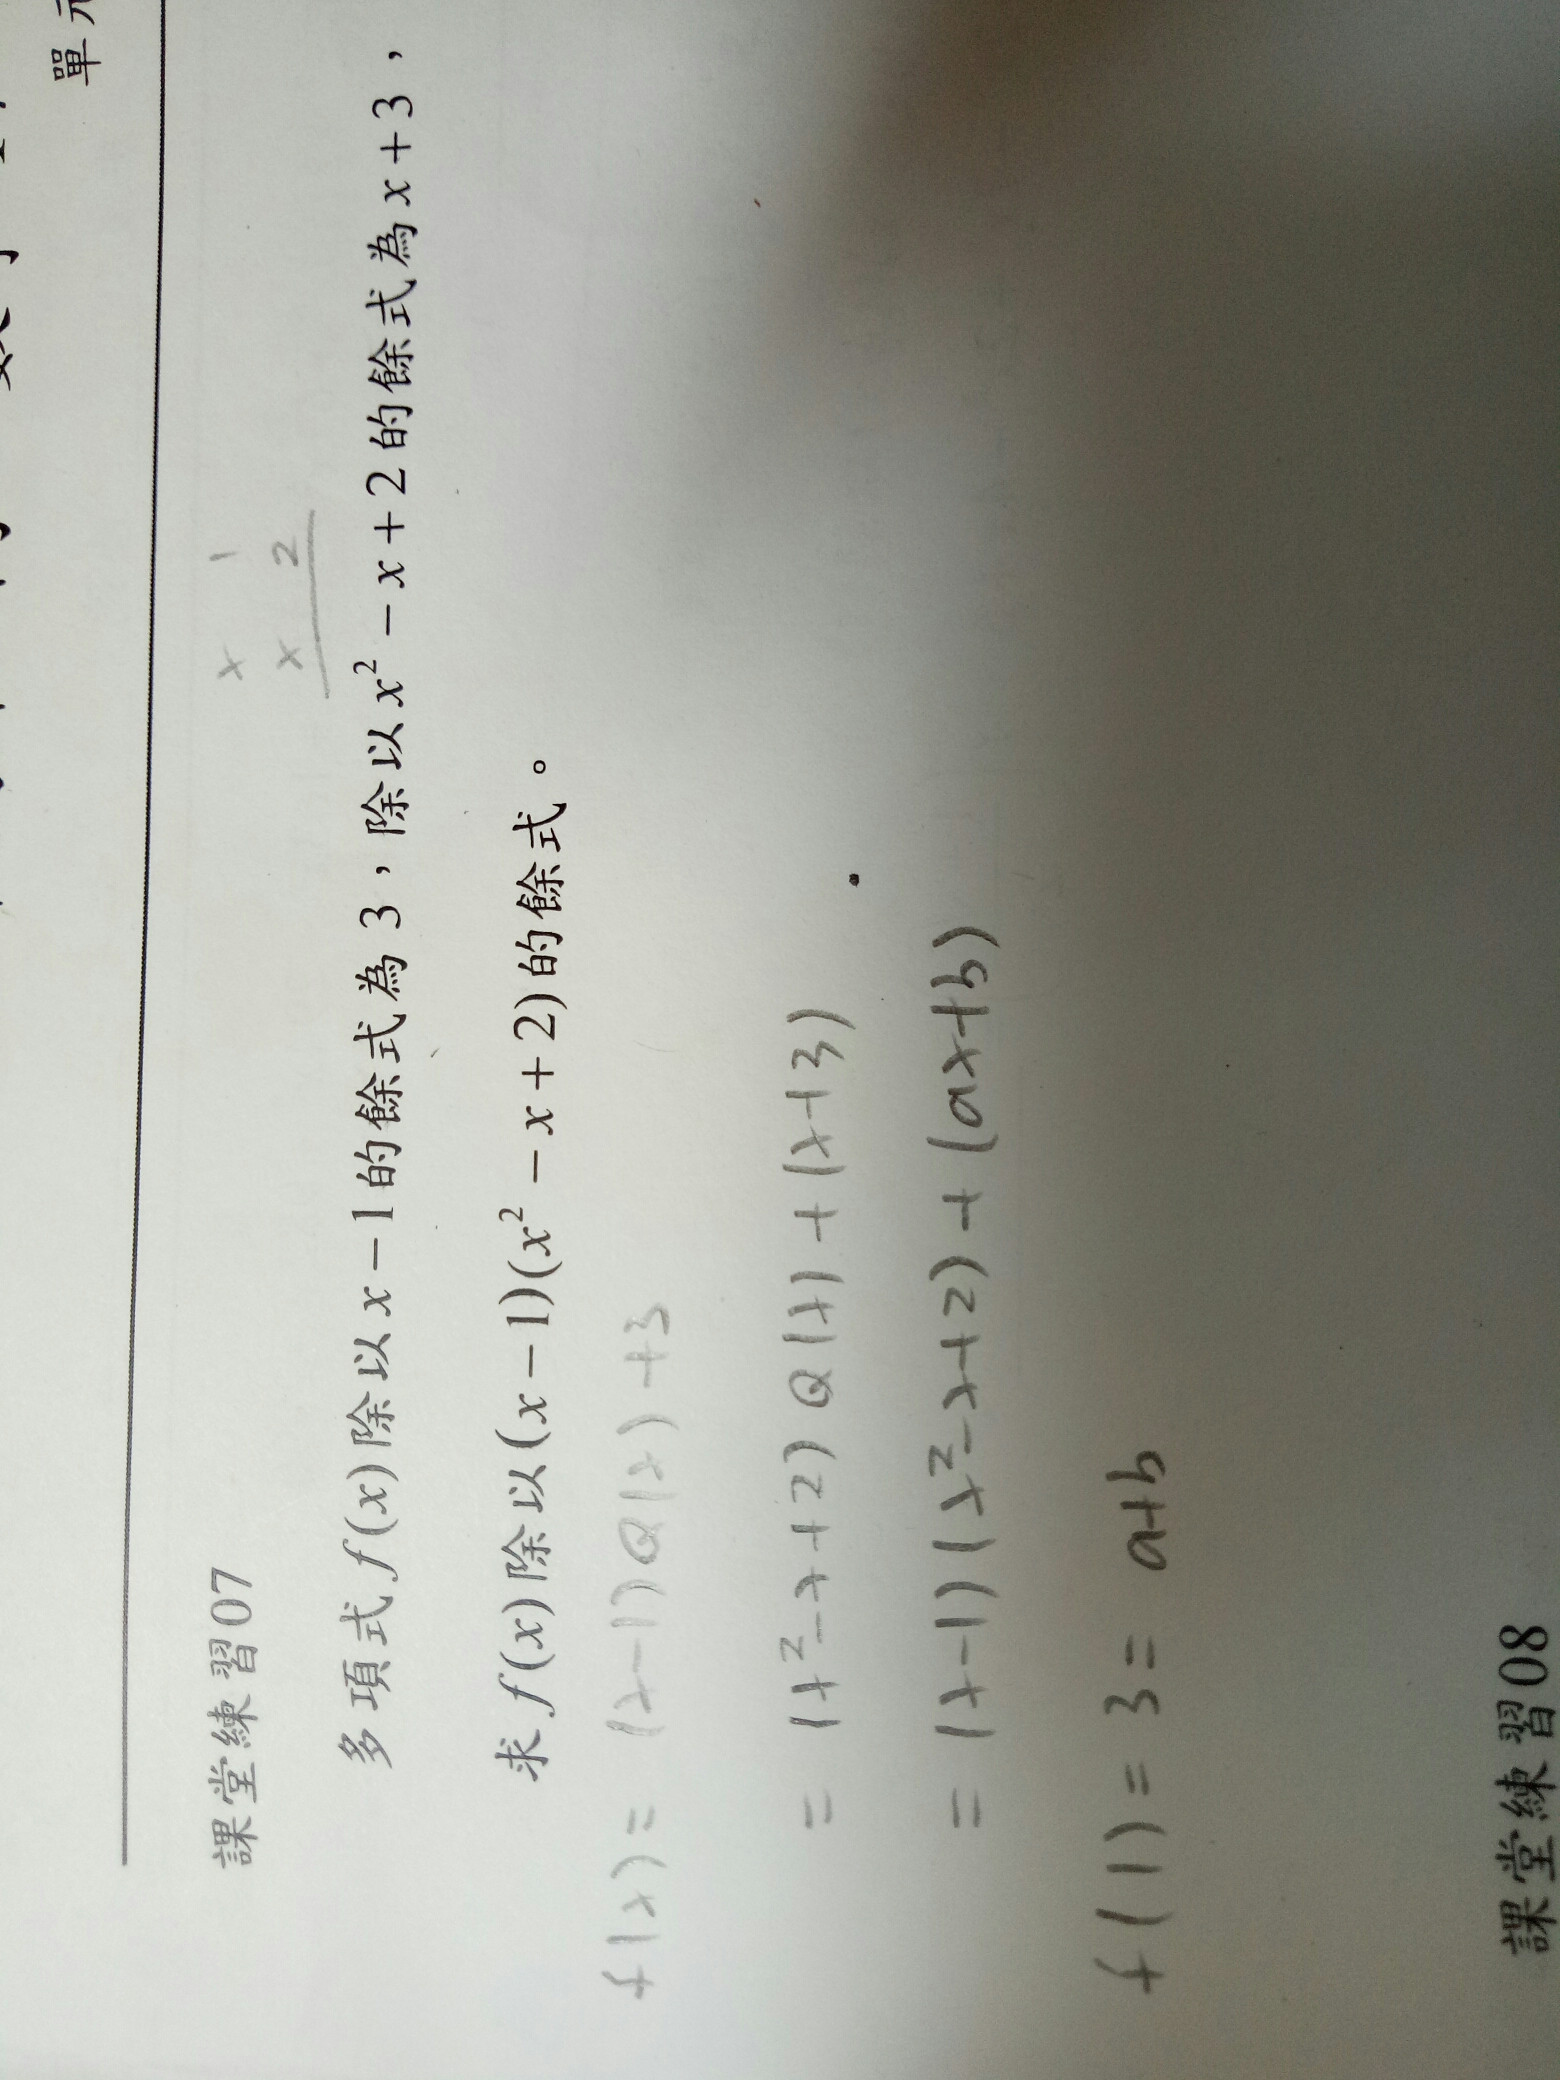 單元
課堂練習07
x 1
x 2
多項式f(x)除以x-1的餘式為3，除以x²-x+2的餘式為x+3，
求f(x)除以(x-1)(x²-x+2)的餘式。
f(x)= (x-1)Q(x)+3
= (x²-x+2)Q(x)+(x+3)
= (x-1)(x²-x+2)+(ax+b)
f(1)=3= a+b
課堂練習08